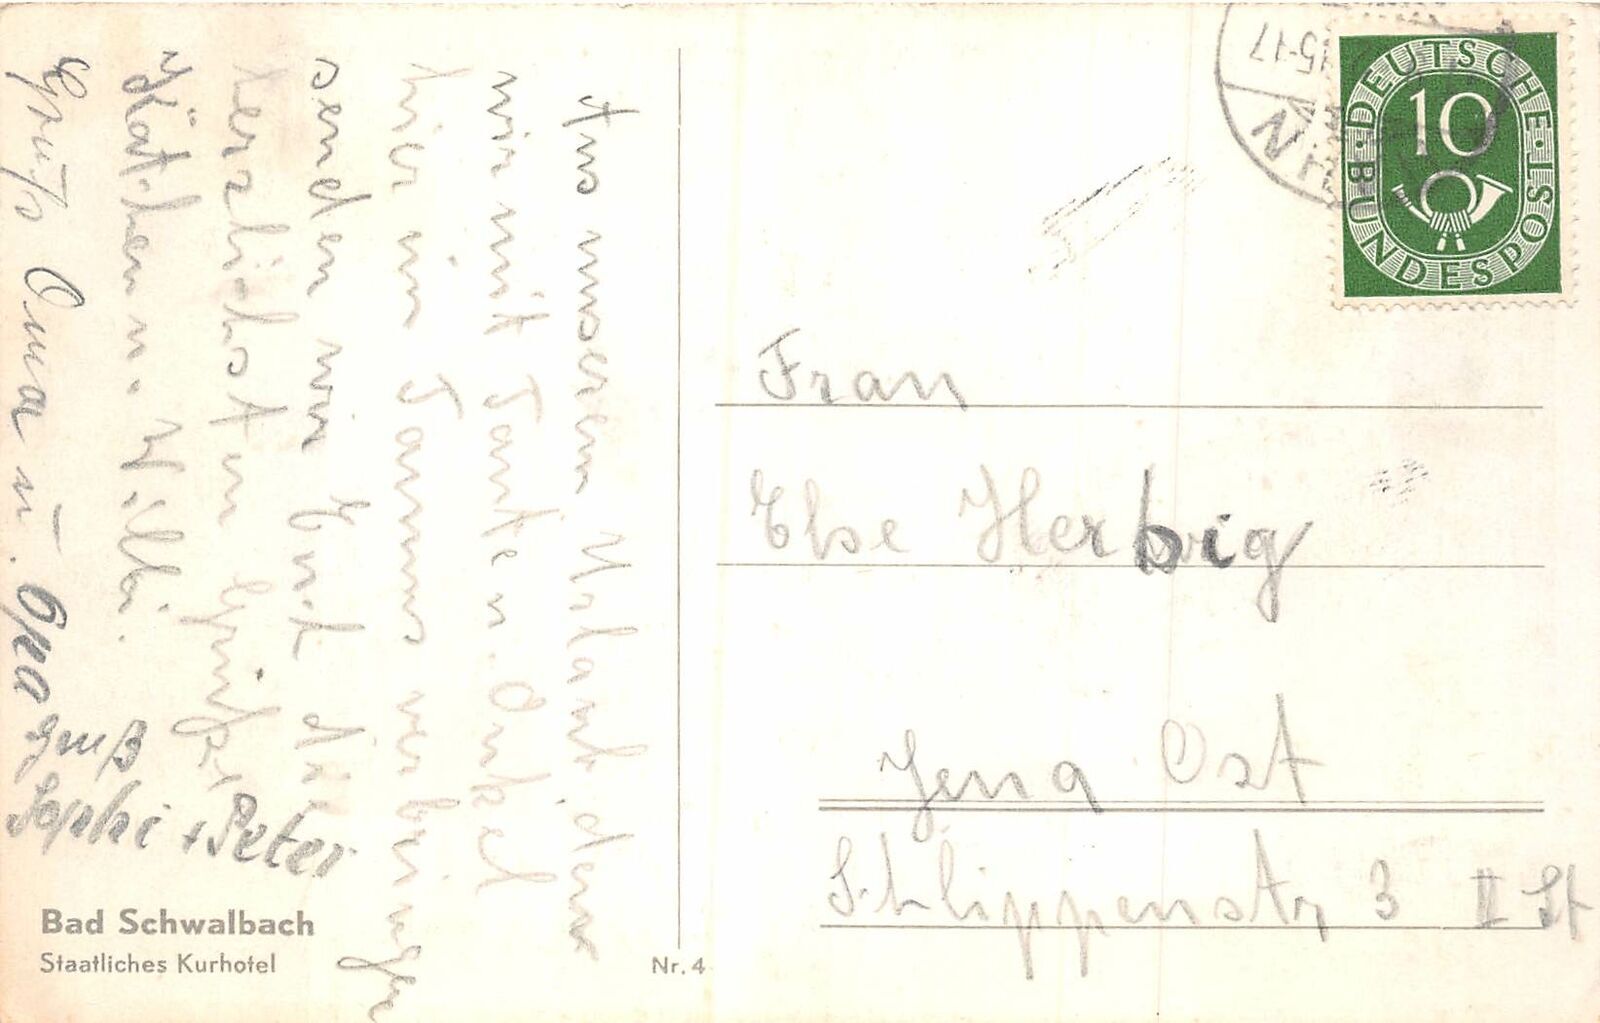 Aus unserem Urlaub denn
wir mit Tante u. Onkel
hier im Taunus verbringen
senden wir Euch die
herzlichsten Grüße.
Kätchen u. Willi.
Gruß Oma u. Opa
gruß
Sophi + Peter
Bad Schwalbach
Staatliches Kurhotel
Nr. 4
15-17
DEUTSCHE BUNDESPOST
10
Frau
Else Herbig
Jena Ost
Schlippenstr 3 II St